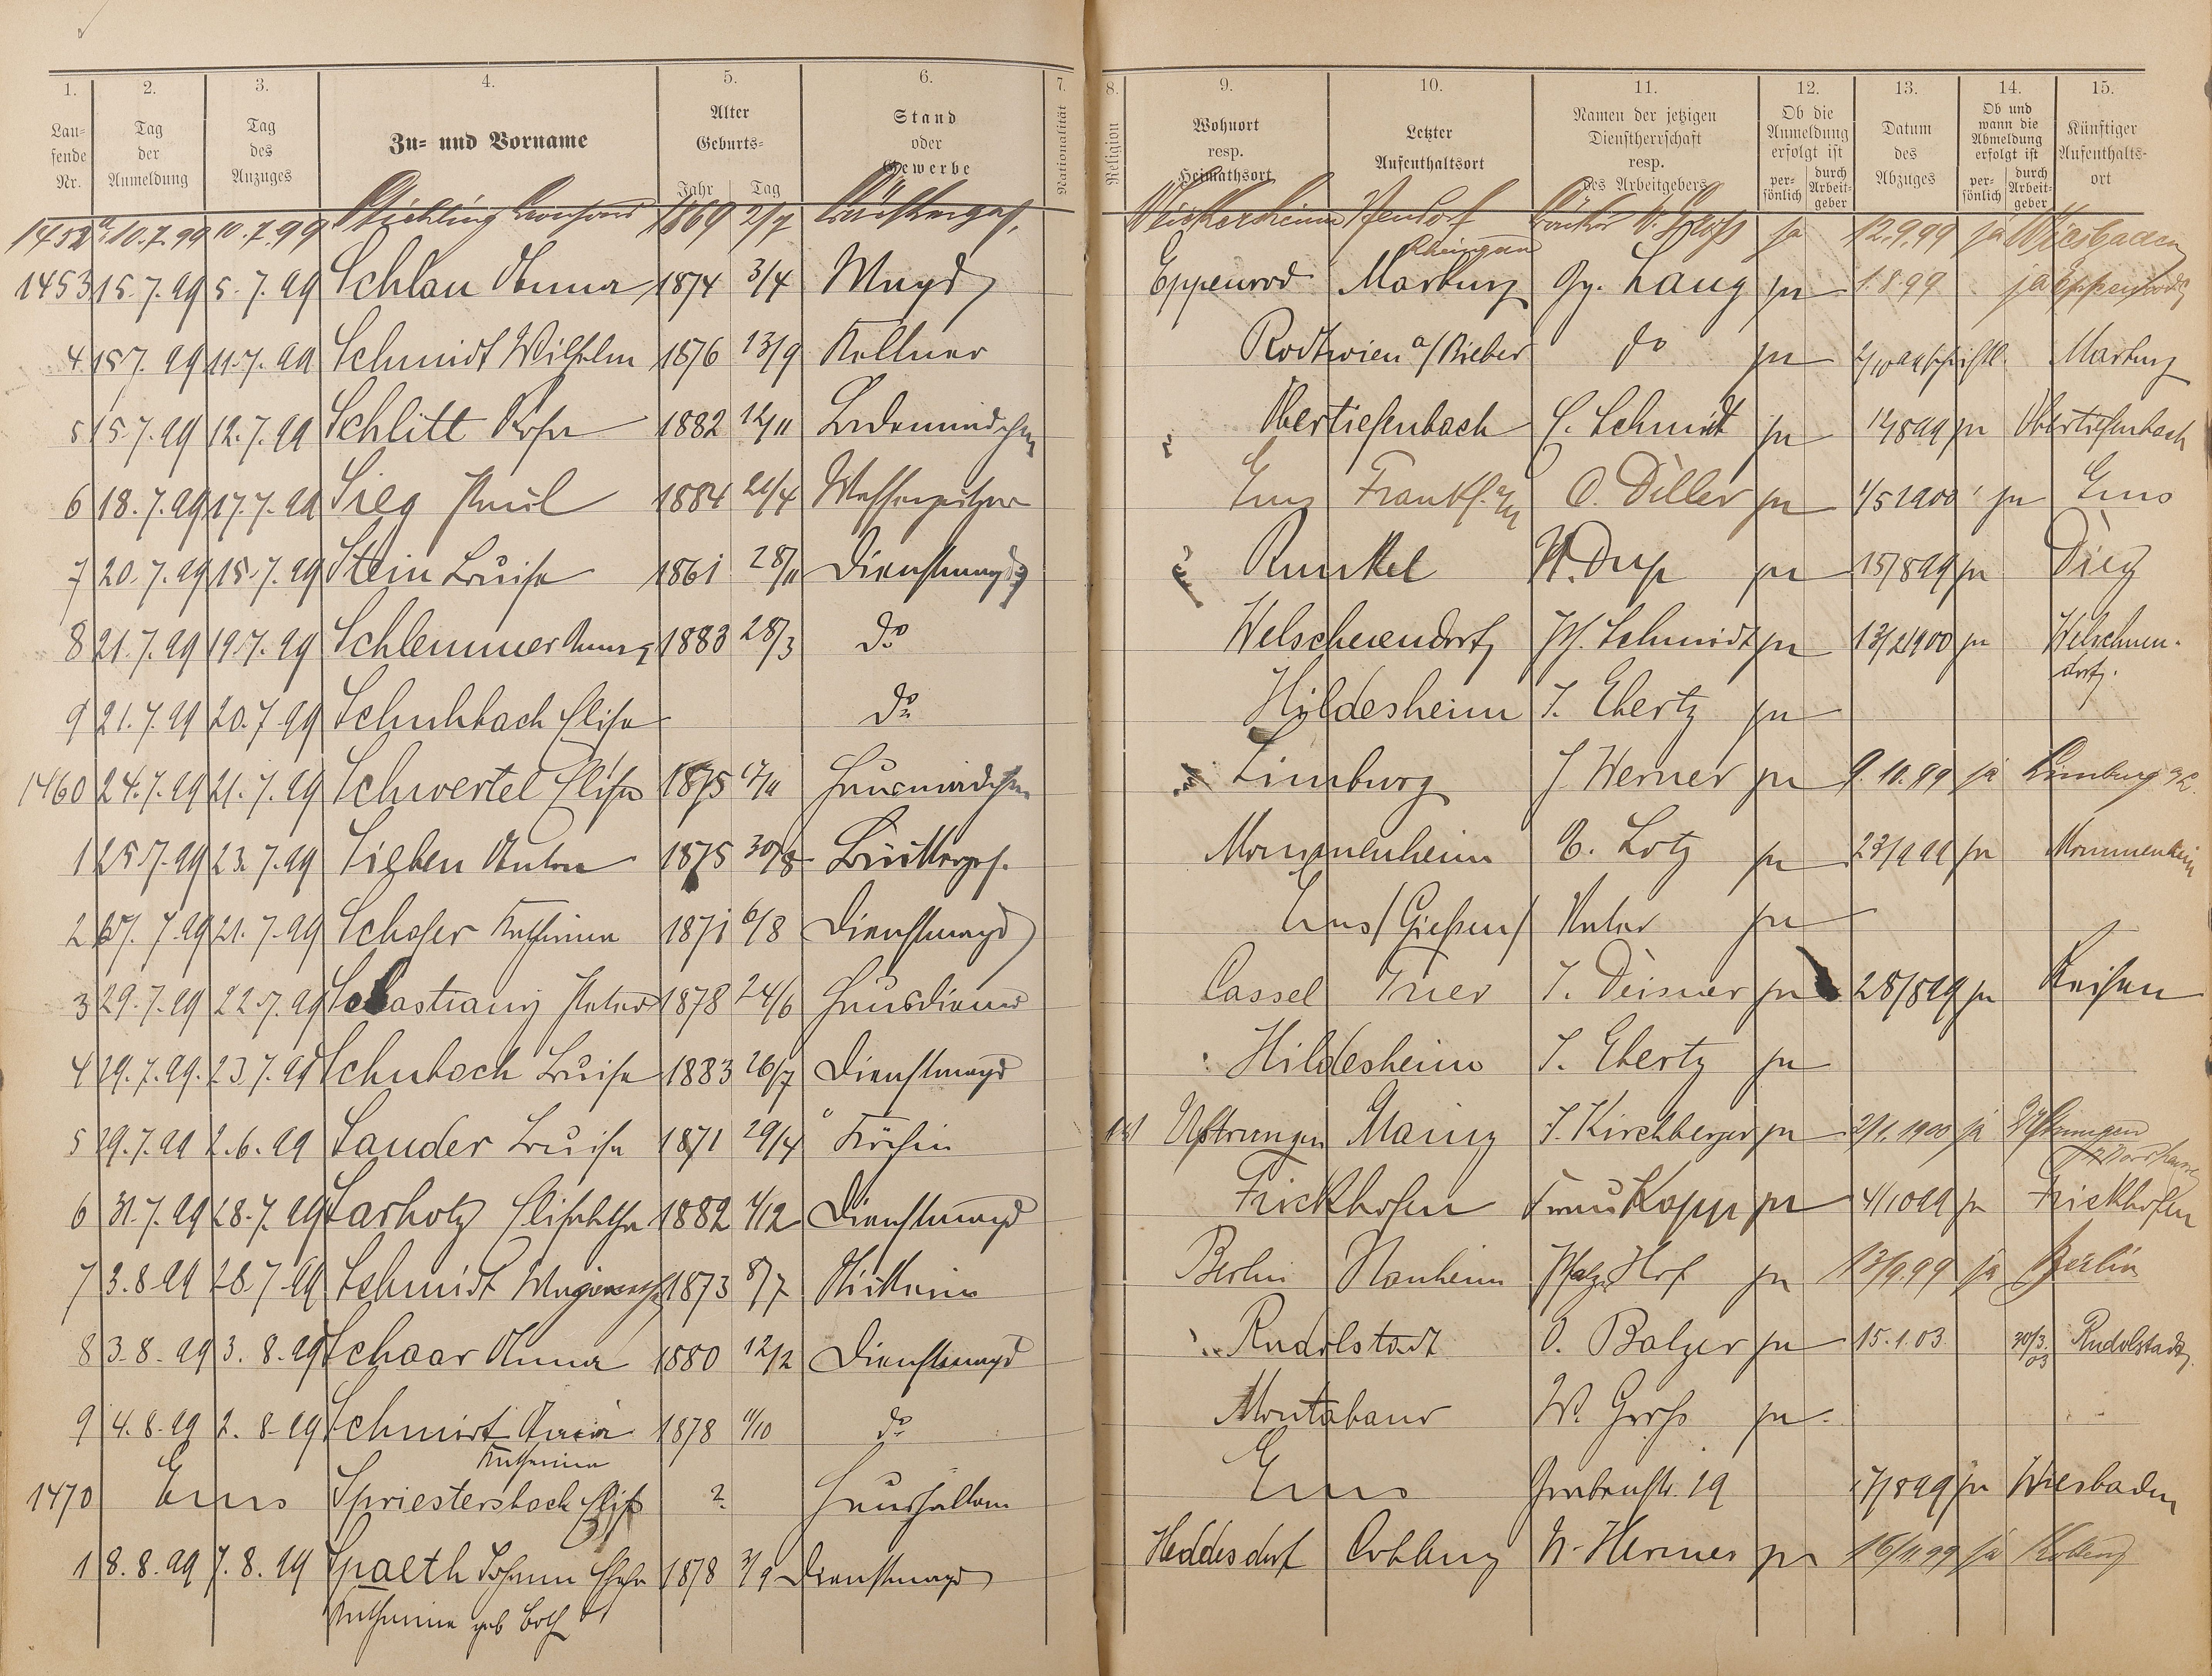 1. 2. 3. 4. 5. 6. 7. 8. 9. 10. 11. 12. 13. 14. 15.
Laufende Nr. Tag der Anmeldung Tag des Anzuges Zu- und Vorname Alter Geburts- Jahr Tag Stand oder Gewerbe Nationalität Religion Wohnort resp. Heimathsort Letzter Aufenthaltsort Namen der jetzigen Dienstherrschaft resp. des Arbeitgebers Ob die Anmeldung erfolgt ist persönlich durch Arbeitgeber Datum des Abzuges Ob und wann die Abmeldung erfolgt ist persönlich durch Arbeitgeber Künftiger Aufenthaltsort
1452a 10.7.99 10.7.99 1869 2/7 W. Groß ja 12.9.99 ja Wiesbaden
1453 15.7.99 5.7.99 Schlau Anna 1874 3/4 Magd Eppenrod Marburg Gg. Lang ja 1.8.99 ja Eppenrod
4 15.7.99 11.7.99 Schmidt Wilhelm 1876 13/9 Kellner a/Bieber do ja Marburg
5 15.7.99 12.7.99 Schlitt Rosa 1882 12/11 Ladenmädchen Obertiefenbach C. Schmidt ja 14/8 99 ja Obertiefenbach
6 18.7.99 17.7.99 Sieg Paul 1884 21/4 Messerputzer Ems Frankf. a/M O. Diller ja 1/5 1900 ja Ems
7 20.7.99 15.7.99 Stein Luise 1861 28/11 Dienstmagd Runkel ja 15/8 99 ja Diez
8 21.7.99 19.7.99 Schlemmer Anna 1883 28/3 do Welschneudorf Schmidt ja 13/2 1900 ja Welschneudorf.
9 21.7.99 20.7.99 Schuhbach Elise do Hildesheim J. Ebertz ja
1460 24.7.99 21.7.99 Schwertel Elise 1875 17/11 Hausmädchen Limburg J. Werner ja 9.10.99 ja Limburg a/L.
1 25.7.99 23.7.99 Sieben Anton 1875 30/8 Küfergeh. Mommenheim E. Lotz ja 23/9 99 ja Mommenheim
2 27.7.99 21.7.99 Schofer Katharina 1871 6/8 Dienstmagd Ems (Gießen) ja
3 29.7.99 22.7.99 Sebastiany Peter 1878 24/6 Hausdiener Cassel Trier J. Deisner ja 28/8 99 ja Reisen
4 29.7.99. 23.7.99 Schuboch Luise 1883 26/7 Dienstmagd Hildesheim J. Ebertz ja
5 29.7.99 2.6.99 Sauder Luise 1871 29/4 Köchin Uftrungen Mainz J. Kirchberger ja 2/1. 1900 ja Uftrungen
6 31.7.99 28.7.99 Sarholz Elisabetha 1882 4/12 Dienstmagd Frickhofen Frau Kopp ja 4/10 99 ja Frickhofen
7 3.8.99 28.7.99 Schmidt 1873 8/7 Berlin Nauheim Pfälz. Hof ja 13/9.99 ja Berlin
8 3.8.99 3.8.99 Schaar Anna 1880 12/2 Dienstmagd Rudolstadt O. Balzer ja 15.1.03 30/3. 03 Rudolstadt
9 4.8.99 2.8.99 Schmidt Anna 1878 11/10 do Montabaur W. Groß ja
Katharina
1470 Ems Spriestersbach Elise ? Haushälterin Ems Grabenstr. 19 17/8 99 ja Wiesbaden
1 8.8.99 7.8.99 Spaeth Johann Ehefr 1878 3/9 Dienstmagd Heddesdorf Coblenz W. Hermes ja 16/11.99 ja Koblenz
Katharina geb Both